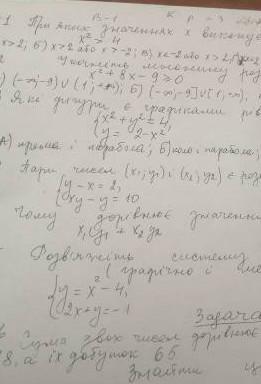 В-1 К р - 3
1 При яких значеннях x викону
x² ≥ 4
x > 2; Б) x > 2 або x > -2; В) x ≤ -2 або x ≥ 2;
множиною роз
x² + 8x - 9 ≥ 0
(-∞; -9) ∪ (1; +∞); Б) (-∞; -9] ∪ [1; +∞),
Які фігури є графіками рів
{x² + y² = 4,
{y = 2 - x².
А) пряма і парабола; Б) коло і парабола;
Пари чисел (x₁; y₁) і (x₂; y₂) є роз
{y - x = 2,
{xy - y = 10
Чому дорівнює значення
x₁y₁ + x₂y₂
Розв'яжіть систему
(графічно і
{y = x² - 4,
{2x + y = -1
Задача
Сума двох чисел дорівнює
8, а їх добуток 65
Знайти ц